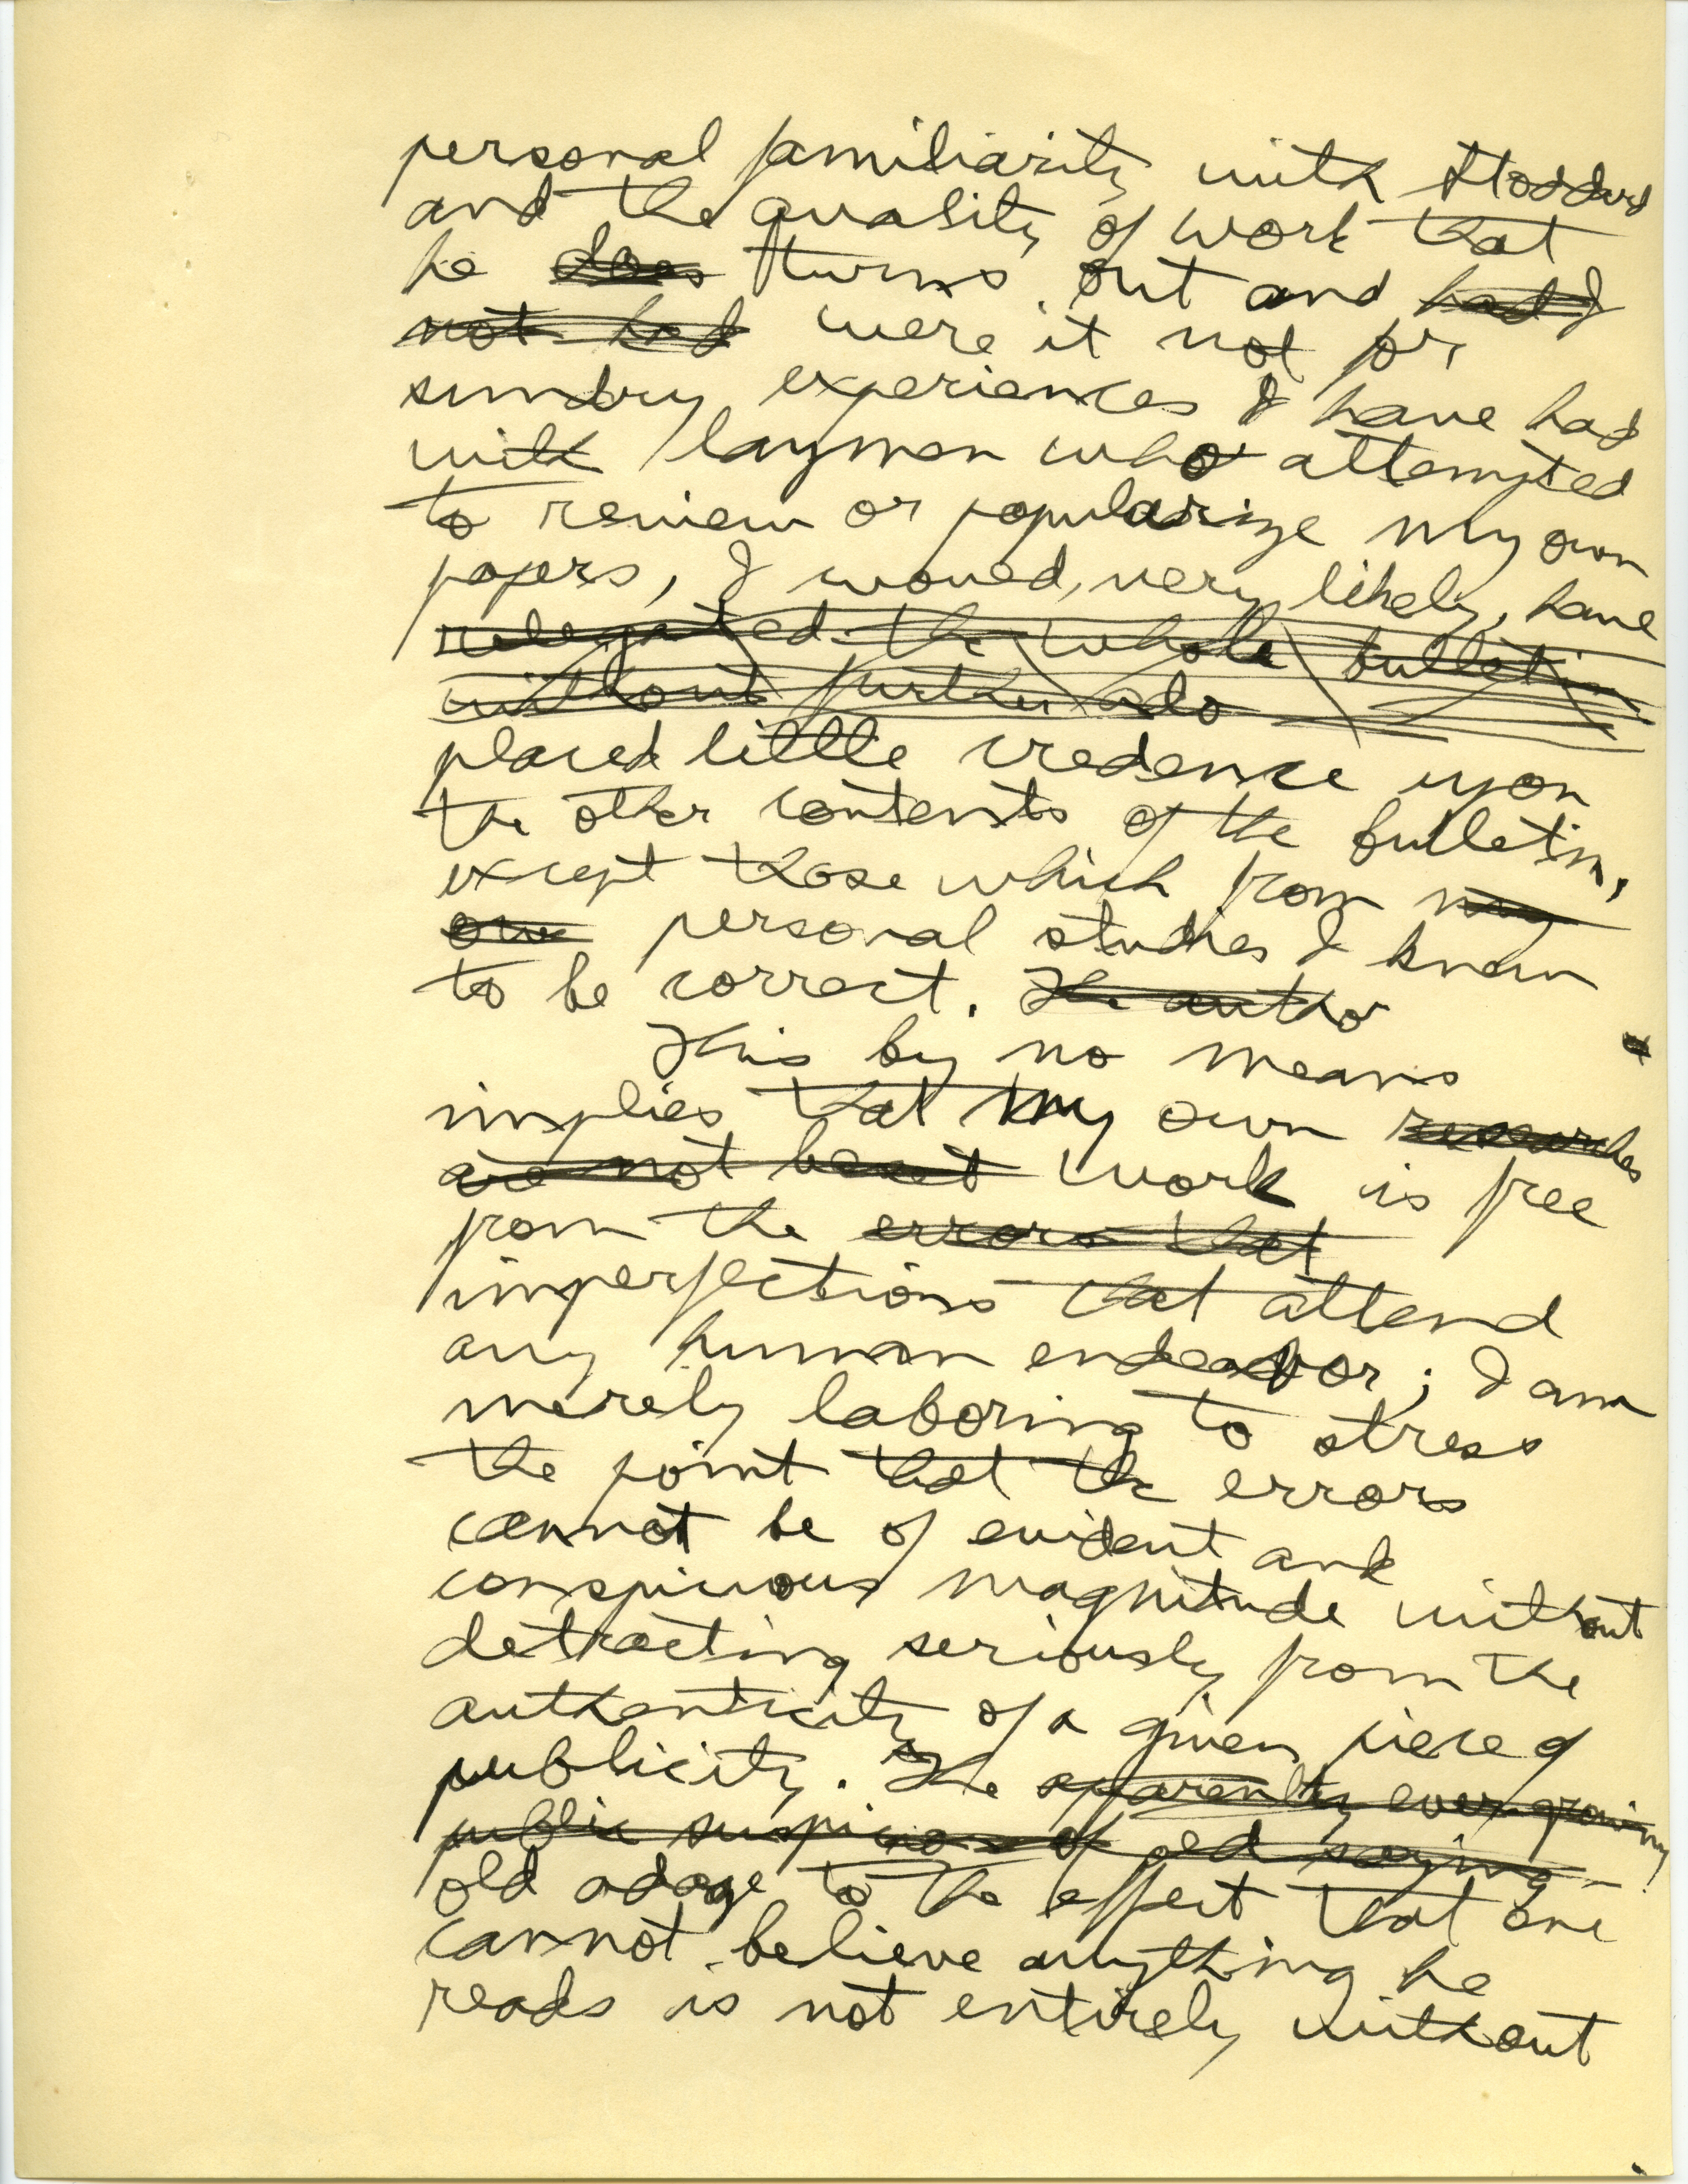 personal familiarity with Stoddard
and the quality of work that
he does turns out and had I
not had were it not for
sundry experiences I have had
with laymen who attempted
to review or popularize my own
papers, I would, very likely, have
relegated the whole bulletin
without further ado
placed little credence upon
the other contents of the bulletin,
except those which from my
own personal studies I knew
to be correct. The autho
This by no means
implies that my own researches
are not beset work is free
from the errors that
imperfections that attend
any human endeavor; I am
merely laboring to stress
the point that the errors
cannot be of evident and
conspicuous magnitude without
detracting seriously from the
authenticity of a given piece of
publicity. The apparently ever-growing
public suspicion of old saying
old adage to the effect that one
cannot believe anything he
reads is not entirely without